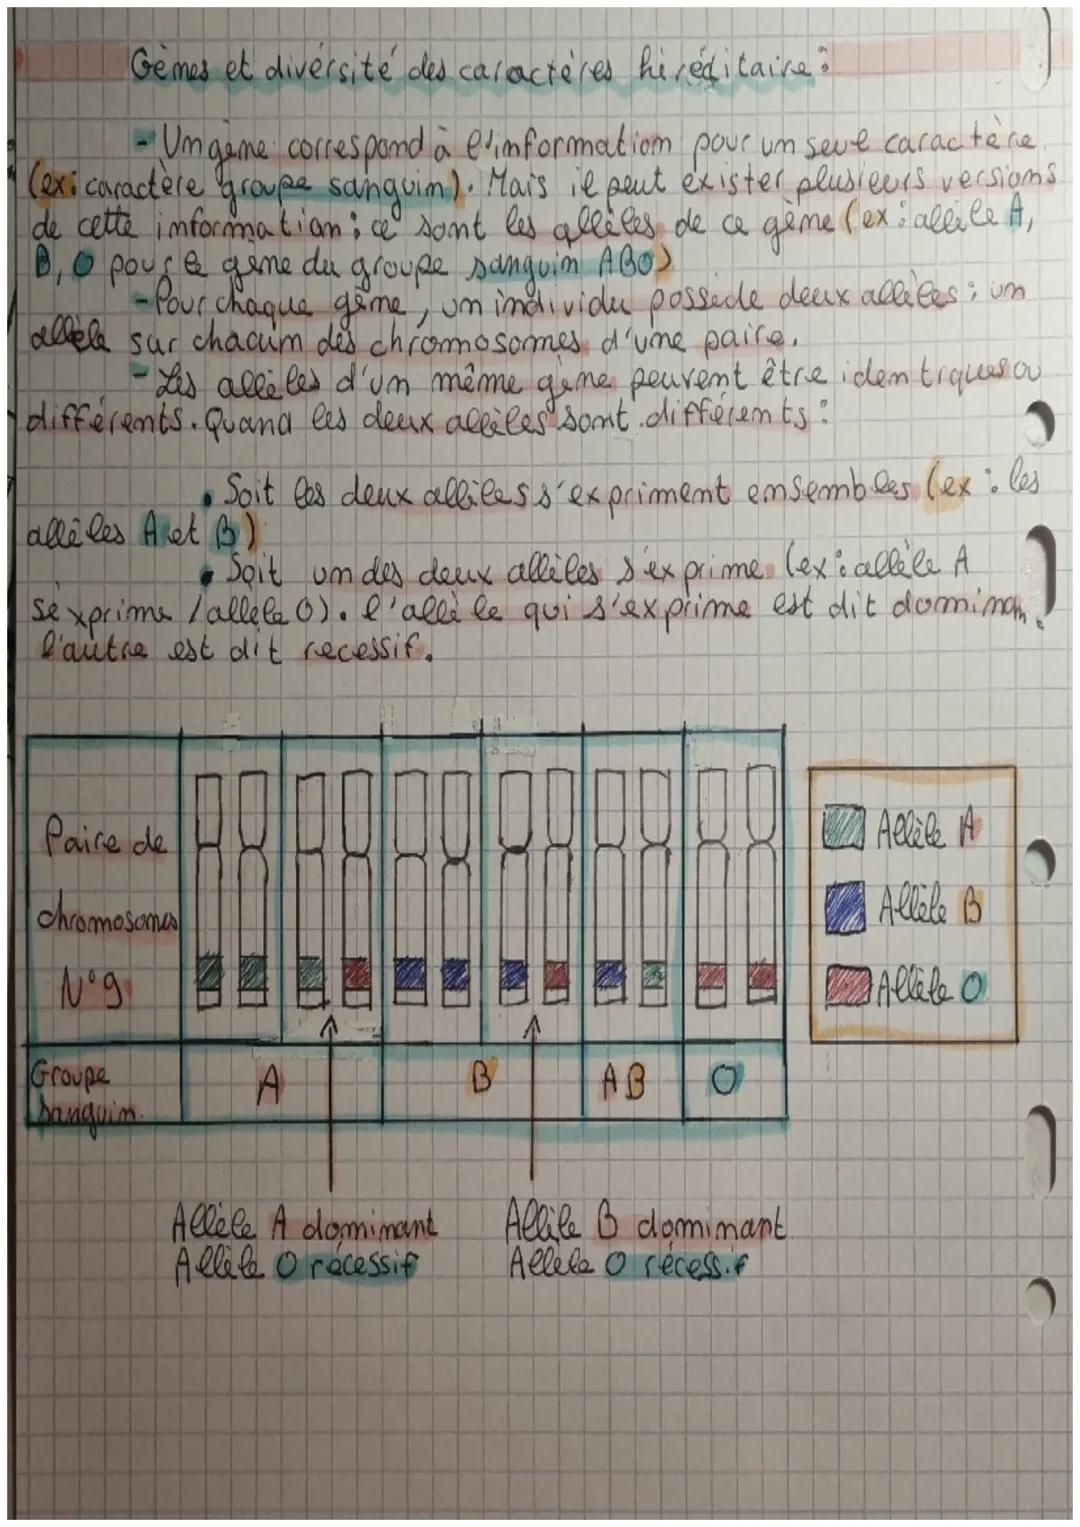 Gènes et diversité des caractères héréditaire :
- Un gène correspond à l'information pour un seul caractère
(ex : caractère groupe sanguin). Mais il peut exister plusieurs versions
de cette information ; ce sont les allèles de ce gène (ex : allèle A,
B, O pour le gène du groupe sanguin ABO)
- Pour chaque gène, un individu possède deux allèles : un
allèle sur chacun des chromosomes d'une paire.
- Les allèles d'un même gène peuvent être identiques ou
différents. Quand les deux allèles sont différents :
• Soit les deux allèles s'expriment ensembles (ex : les
allèles A et B)
• Soit un des deux allèles s'exprime (ex : allèle A
s'exprime / allèle O). l'allèle qui s'exprime est dit dominan,
l'autre est dit recessif.
Paire de
chromosomes
N°9
Allèle A
Allèle B
Allèle O
Groupe
sanguin.
A B AB O
Allèle A dominant Allèle B dominant
Allèle O récessif Allèle O récessif